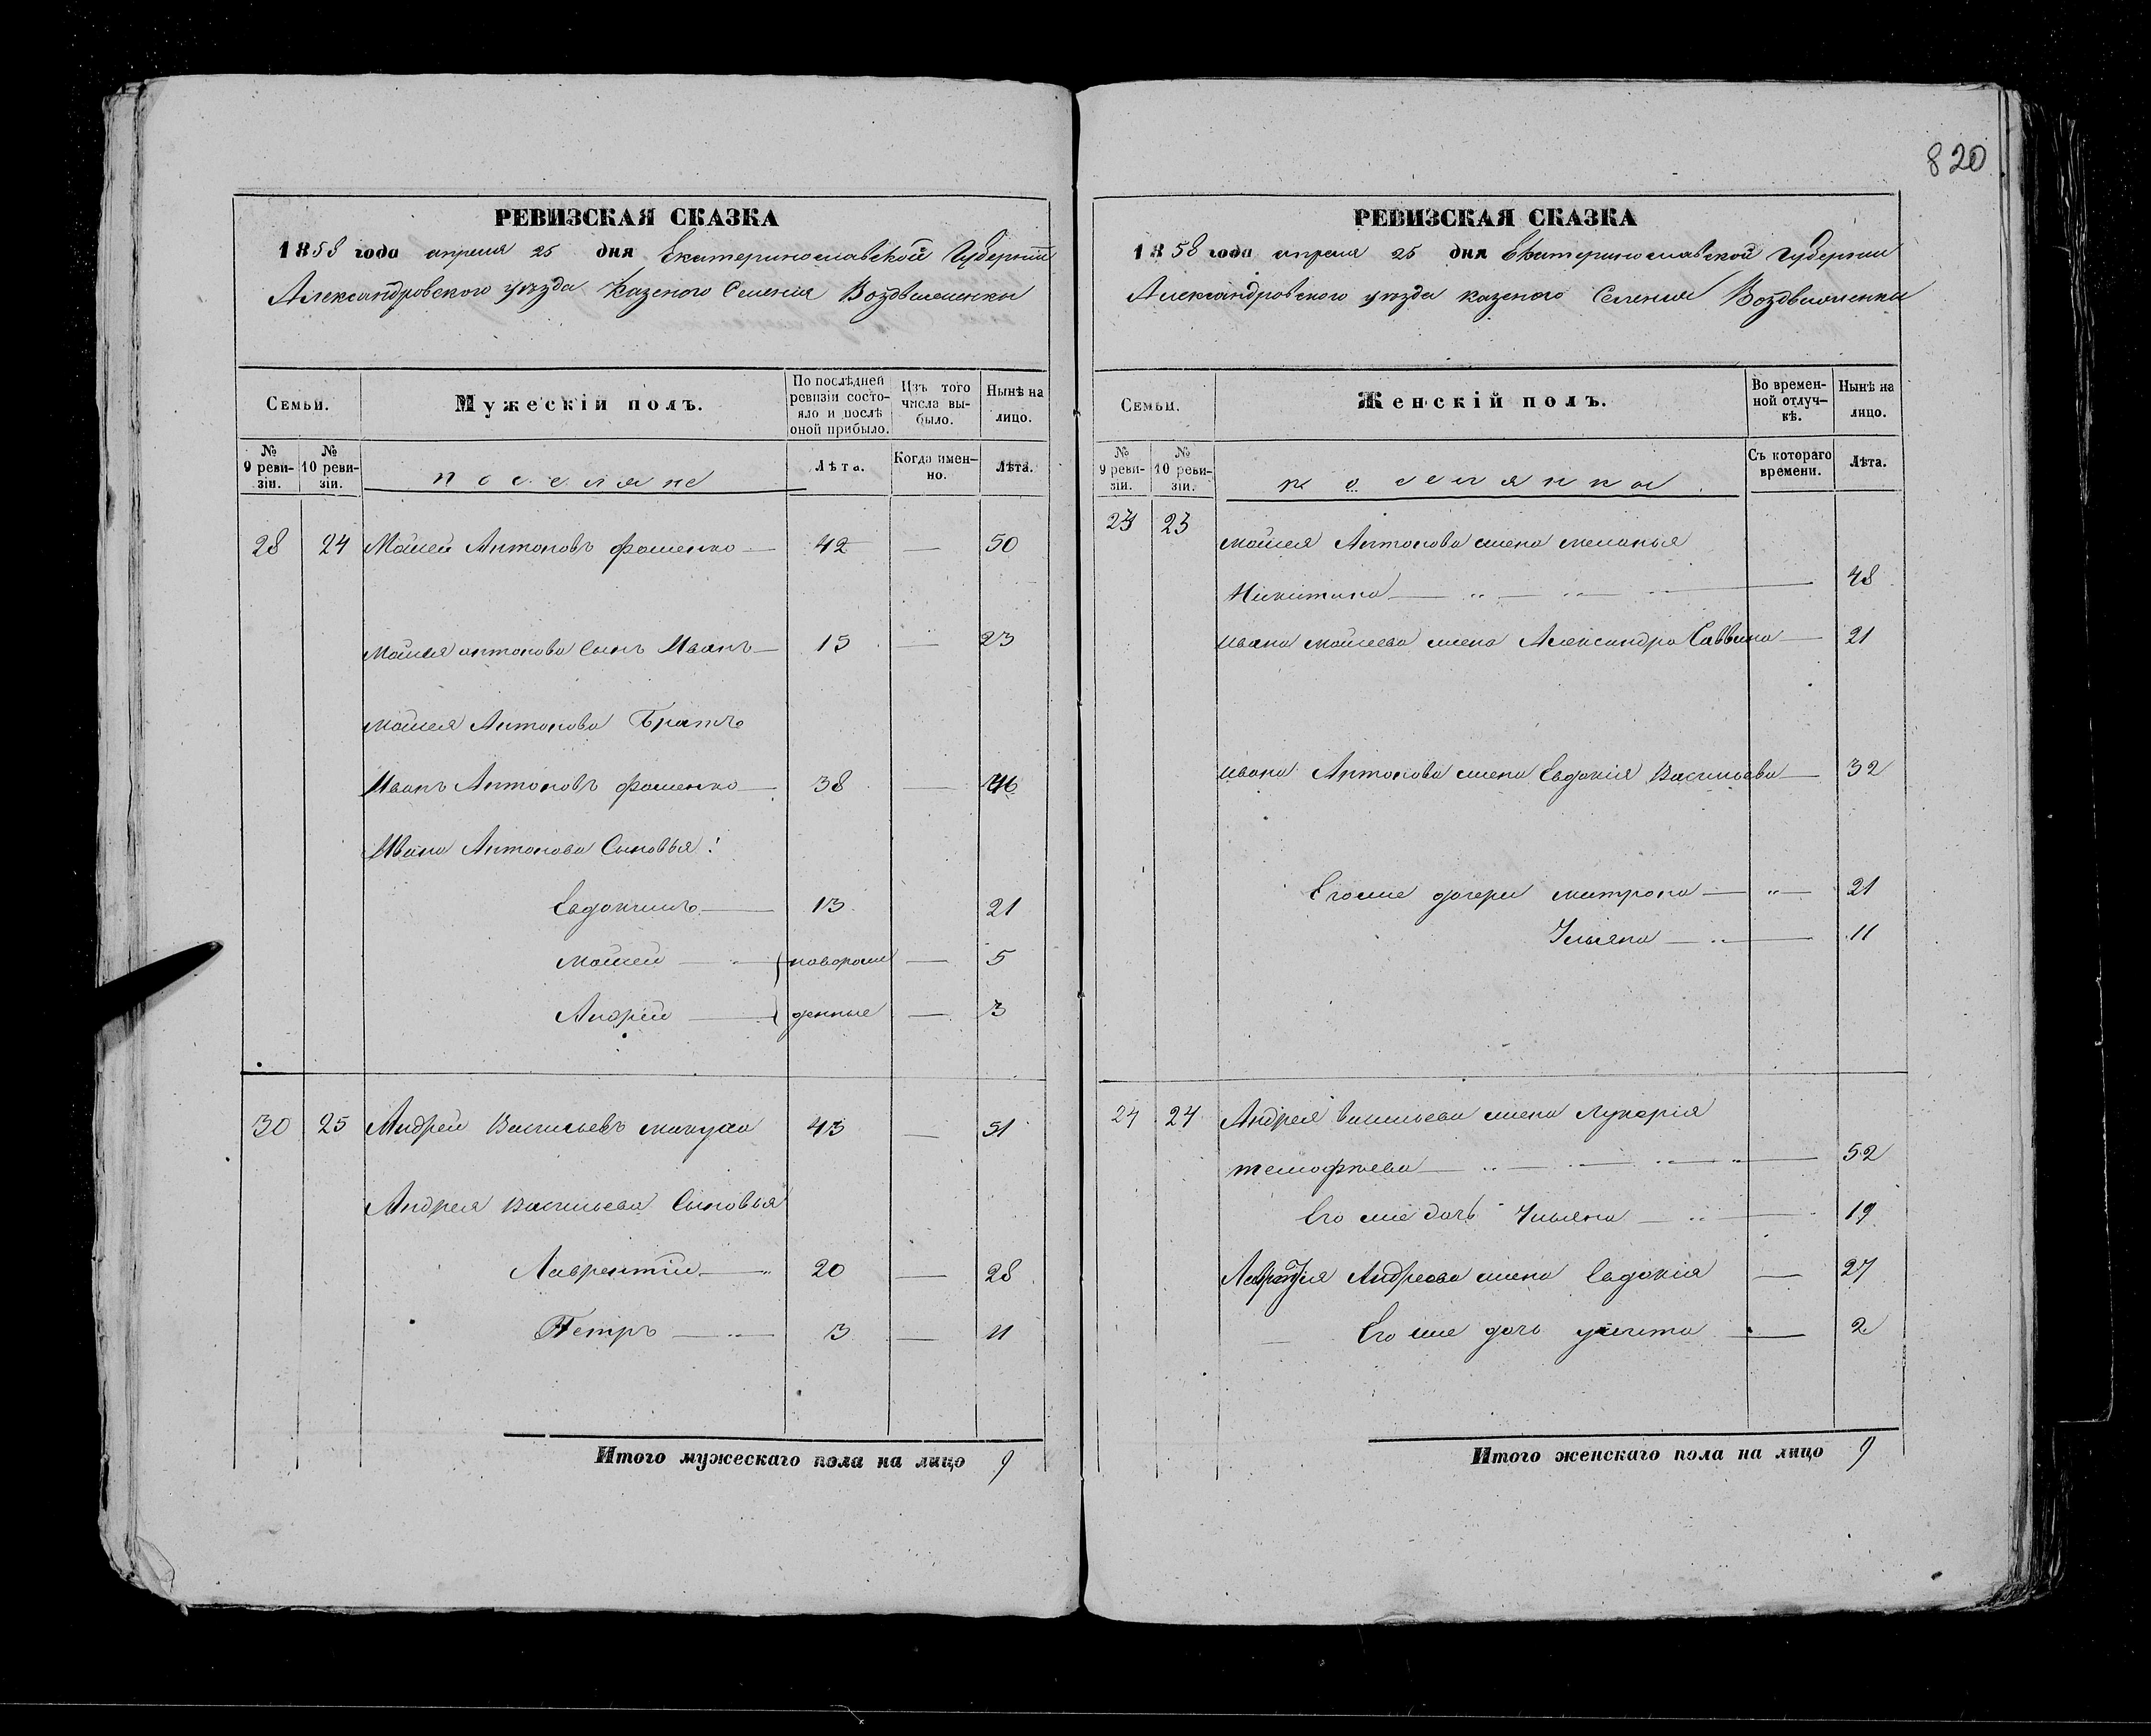 820
РЕВИЗСКАЯ СКАЗКА
1858 года апреля 25 дня Екатеринославской Губернии
Александровского уезда Казеного Селения Воздвиженки
Семьи.
Мужескій полъ.
По послѣдней ревизіи состояло и послѣ оной прибыло.
Изъ того числа выбыло.
Нынѣ на лицо.
№ 9 ревизіи.
№ 10 ревизіи.
поселяне
Лѣта.
Когда именно.
Лѣта.
28 24 Мойсей Антоновъ Фоменко 42 — 50
Мойсея антонова Сынъ Иванъ 15 — 23
Мойсея Антонова Братъ
Иванъ Антоновъ Фоменко 38 — 46
Ивана Антонова Сыновья:
Евдокимъ 13 21
Мойсей новорож 5
Андрей денные — 3
30 25 Андрей Васильевъ 43 — 51
Андрея Васильева Сыновья
Лаврентій 20 — 28
Петръ 3 — 11
Итого мужескаго пола на лицо 9
РЕВИЗСКАЯ СКАЗКА
1858 года апреля 25 дня Екатеринославской Губернии
Александровского уезда казеного Селения Воздвиженки
Семьи.
Женскій полъ.
Во временной отлучкѣ.
Нынѣ на лицо.
№ 9 ревизіи.
№ 10 ревизіи.
поселянки
Съ котораго времени.
Лѣта.
23 23 Мойсея Антонова жена меланья
Никитина 48
Ивана мойсеева жена Александра Саввина 21
Ивана Антонова жена Евдокія Васильева 32
Его же дочери матрона 21
Ульяна 11
24 24 Андрея Васильева жена Лукерія
темофеева 52
Его же дочь Ульяна 19
Лаврентія Андреева жена Евдокія — 27
Его же дочь — 2
Итого женскаго пола на лицо 9